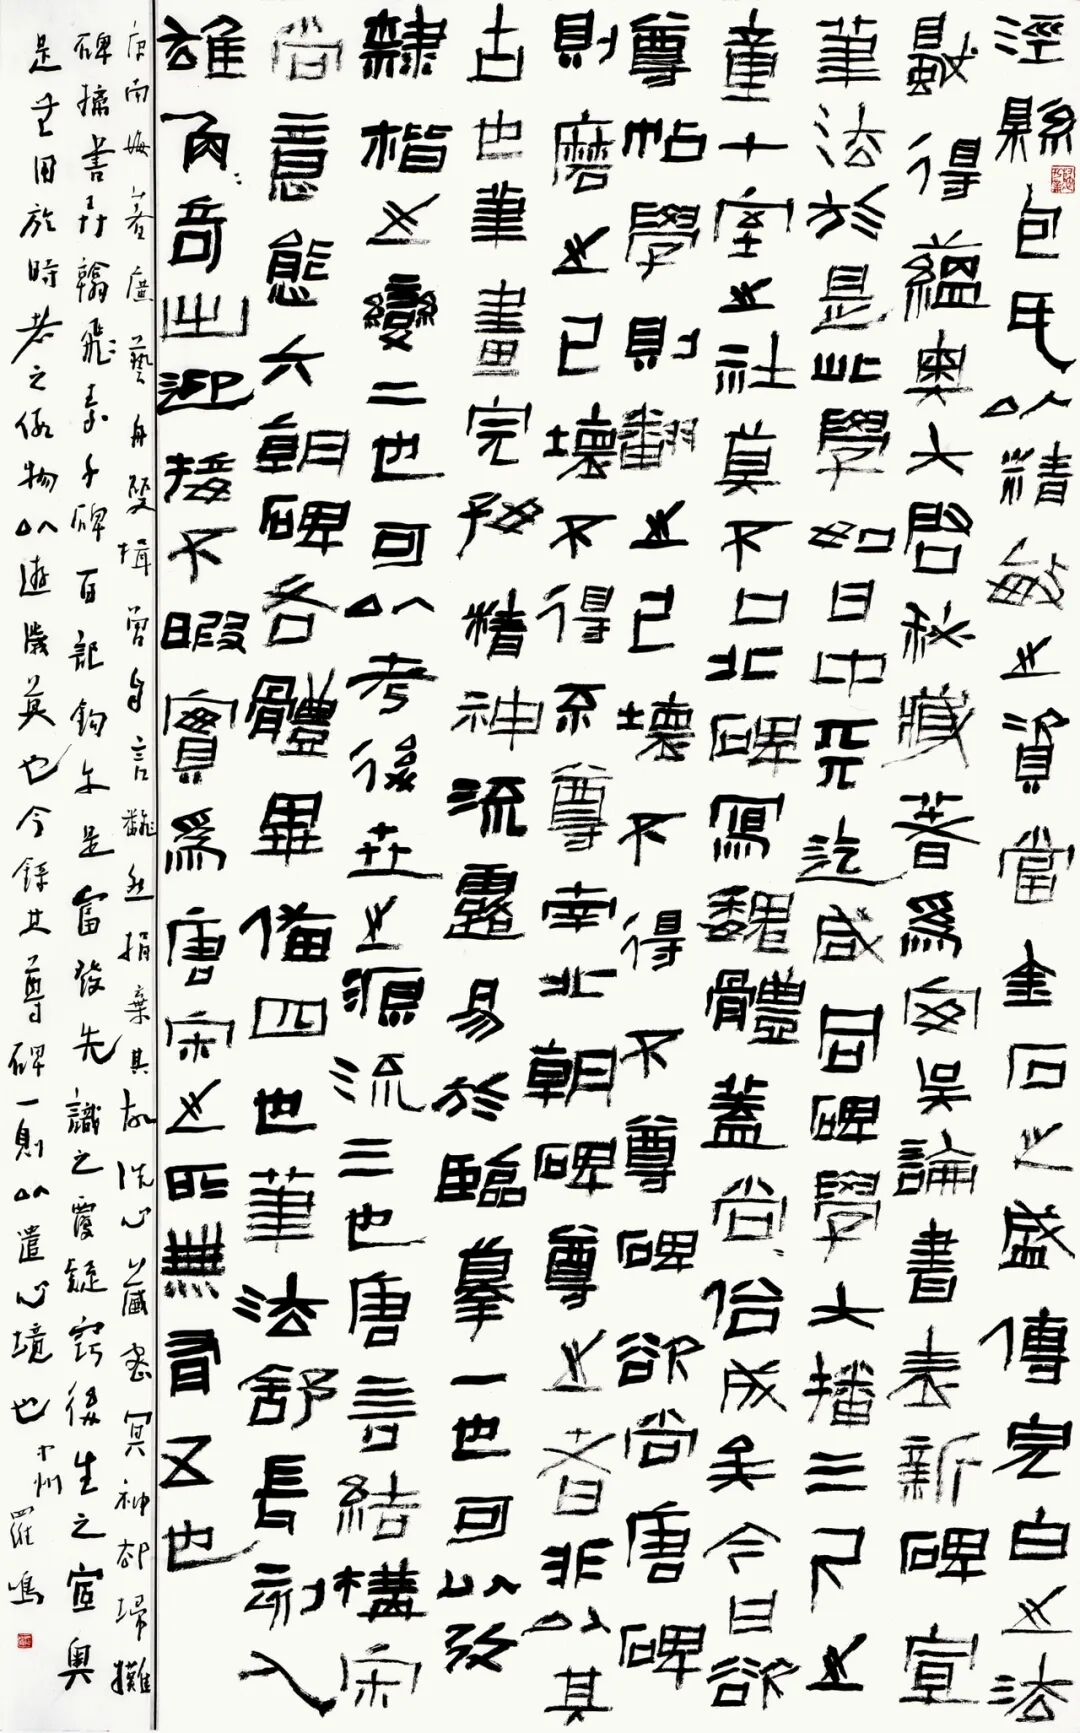 涇縣包氏以精敏之資當金石之盛傳完白之法
獻得蘊奧大啟秘藏著為安吳論書表新碑宣
筆法於是此學如日中天迄咸同碑學大播三尺之
童十室之社莫不口北碑寫魏體蓋尚俗成矣今日欲
尊帖學則翻之已壞不得不尊碑欲尚唐碑
則磨之已壞不得不尊南北朝碑尊之者非以其
古也筆畫完好精神流露易於臨摹一也可以攷
隸楷之變二也可以考後世之源流三也唐言結構宋
尚意態六朝碑各體畢備四也筆法舒長刻入
雄角奇出迎接不暇實為唐宋之所無有五也
康南海著廣藝舟雙楫曾自言翻然捐棄其故洗心藏密冥神卻掃攤
碑摛書弄翰飛素千碑百記鈎午是富發先識之覆疑竅後生之宧奧
是無用於時者之假物以遊歲莫也今錄其尊碑一則以遣心境也中州羅鳴